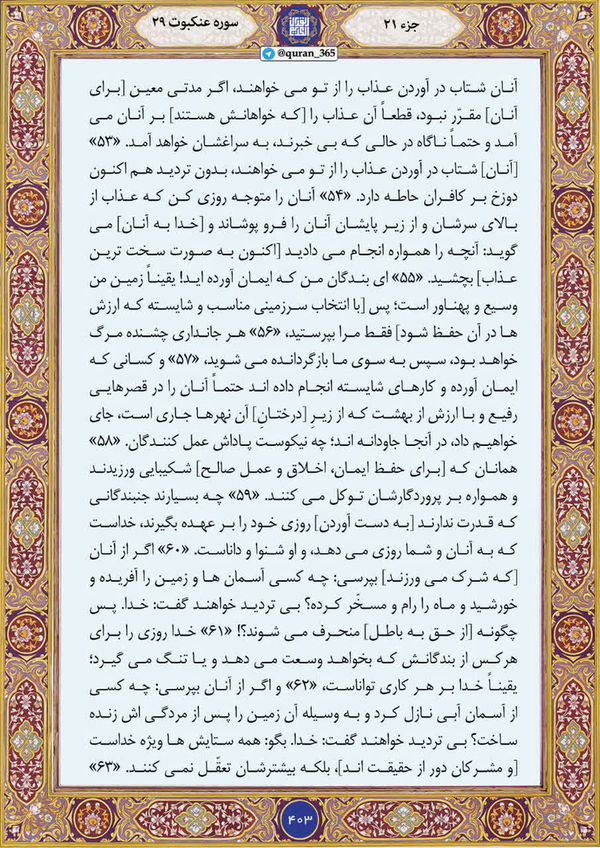 جزء ۲۱
سوره عنکبوت ۲۹
@quran_365
آنان شتاب در آوردن عذاب را از تو می خواهند، اگر مدتی معین [برای
آنان] مقرّر نبود، قطعاً آن عذاب را [که خواهانش هستند] بر آنان می
آمد و حتماً ناگاه در حالی که بی خبرند، به سراغشان خواهد آمد. «۵۳»
[آنان] شتاب در آوردن عذاب را از تو می خواهند، بدون تردید هم اکنون
دوزخ بر کافران حاطه دارد. «۵۴» آنان را متوجه روزی کن که عذاب از
بالای سرشان و از زیر پایشان آنان را فرو پوشاند و [خدا به آنان] می
گوید: آنچه را همواره انجام می دادید [اکنون به صورت سخت ترین
عذاب] بچشید. «۵۵» ای بندگان من که ایمان آورده اید! یقیناً زمین من
وسیع و پهناور است؛ پس [با انتخاب سرزمینی مناسب و شایسته که ارزش
ها در آن حفظ شود] فقط مرا بپرستید، «۵۶» هر جانداری چشنده مرگ
خواهد بود، سپس به سوی ما بازگردانده می شوید، «۵۷» و کسانی که
ایمان آورده و کارهای شایسته انجام داده اند حتماً آنان را در قصرهایی
رفیع و با ارزش از بهشت که از زیرِ [درختانِ] آن نهرها جاری است، جای
خواهیم داد، در آنجا جاودانه اند؛ چه نیکوست پاداش عمل کنندگان. «۵۸»
همانان که [برای حفظ ایمان، اخلاق و عمل صالح] شکیبایی ورزیدند
و همواره بر پروردگارشان توکل می کنند. «۵۹» چه بسیارند جنبندگانی
که قدرت ندارند [به دست آوردن] روزی خود را بر عهده بگیرند، خداست
که به آنان و شما روزی می دهد، و او شنوا و داناست. «۶۰» اگر از آنان
[که شرک می ورزند] بپرسی: چه کسی آسمان ها و زمین را آفریده و
خورشید و ماه را رام و مسخّر کرده؟ بی تردید خواهند گفت: خدا. پس
چگونه [از حق به باطل] منحرف می شوند؟! «۶۱» خدا روزی را برای
هرکس از بندگانش که بخواهد وسعت می دهد و یا تنگ می گیرد؛
یقیناً خدا بر هر کاری تواناست، «۶۲» و اگر از آنان بپرسی: چه کسی
از آسمان آبی نازل کرد و به وسیله آن زمین را پس از مردگی اش زنده
ساخت؟ بی تردید خواهند گفت: خدا. بگو: همه ستایش ها ویژه خداست
[و مشرکان دور از حقیقت اند]، بلکه بیشترشان تعقّل نمی کنند. «۶۳»
۴۰۳